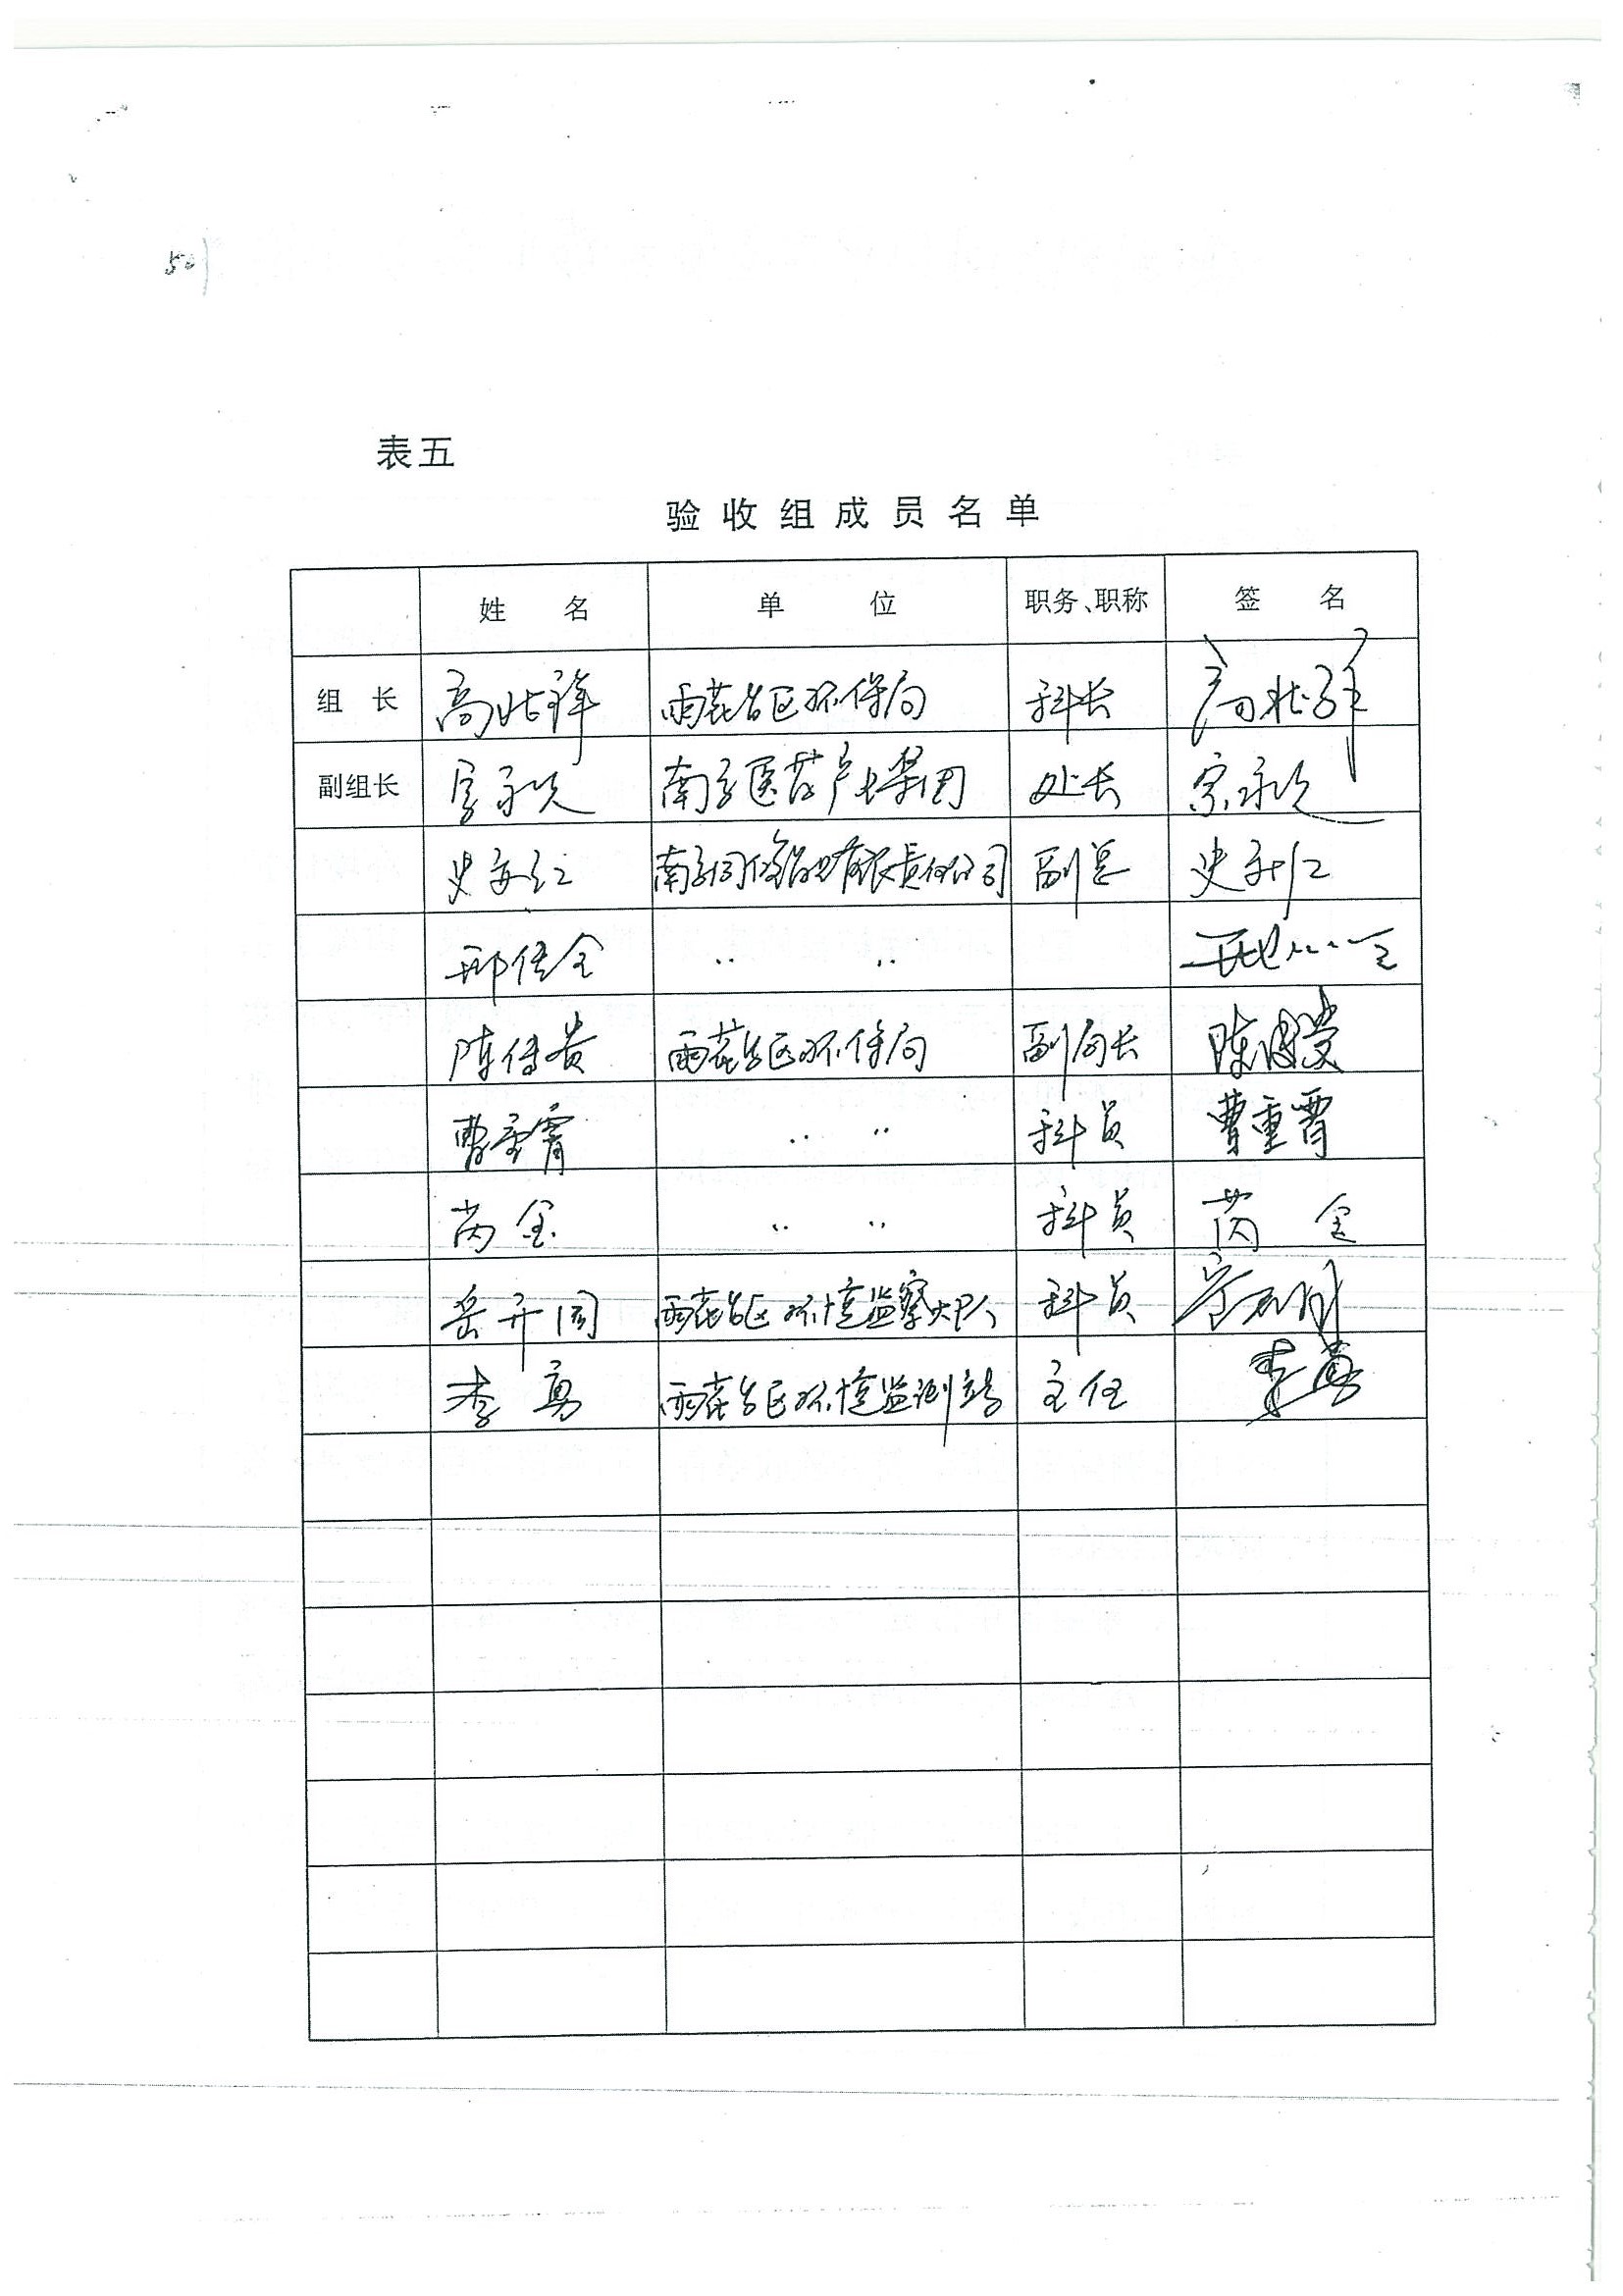 表五
验收组成员名单
姓 名 单 位 职务、职称 签 名
组 长 高兆祥 雨花台区环保局 科长 高兆祥
副组长 宗永久 南京医药产业集团 处长 宗永久
史 南京同仁堂药业有限责任公司 副总 史
邢传全 〃 〃 邢 全
陈传贵 雨花台区环保局 副局长 陈传贵
曹重霄 〃 〃 科员 曹重霄
芮金 〃 〃 科员 芮金
岳开国 雨花台区环境监察大队 科员
李勇 雨花台区环境监测站 主任 李勇